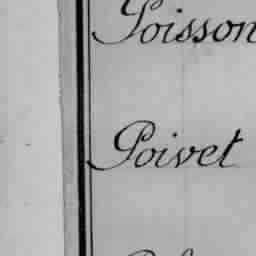 Poisson
Poivet